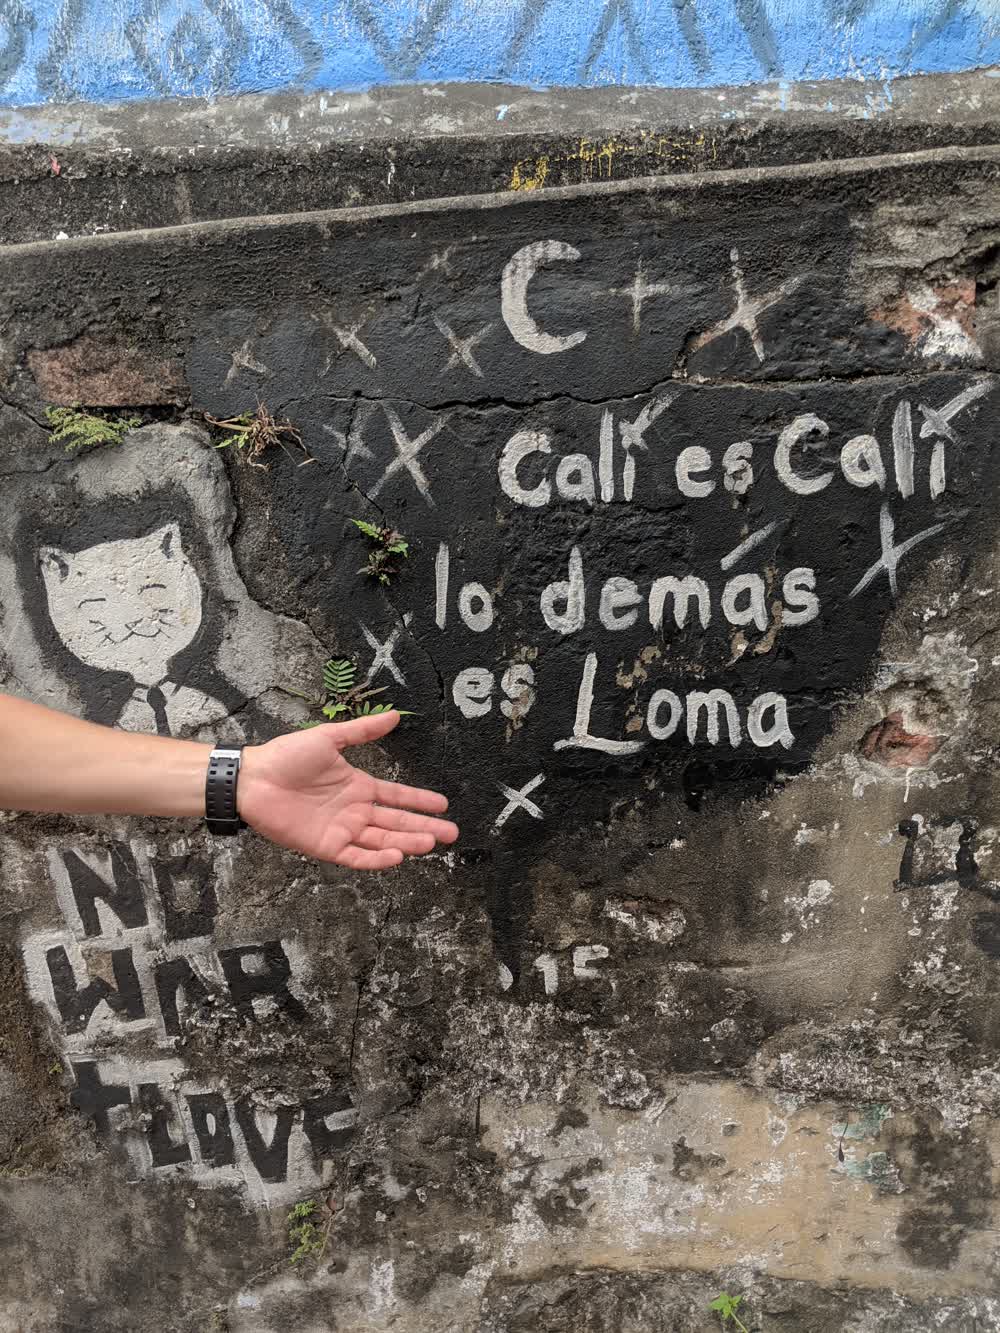 Calí es Calí
lo demás
es Loma
15
NO
WAR
+LOVE